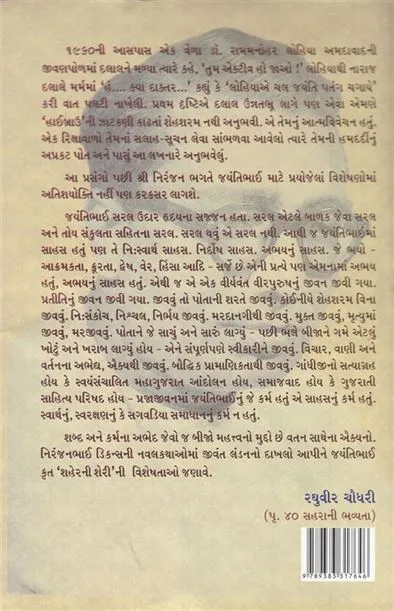 ૧૯૬૦ની આસપાસ એક વેળા ડૉ. રામમનોહર લોહિયા અમદાવાદની
જીવણપોળમાં દલાલને મળ્યા ત્યારે કહે, ‘તુમ એક્ટીવ હો જાઓ !’ લોહિયાથી નારાજ
દલાલે મર્મમાં ‘હં.... ક્યા દાક્તર...’ કહ્યું કે ‘લોહિયાએ ચલ જયંતિ પતંગ ચગાયે’
કરી વાત પલટી નાખેલી. પ્રથમ દષ્ટિએ દલાલ ઉન્નતભ્રૂ લાગે પણ એવા એમણે
‘હાઈબ્રાઉ’ની ઝાટકણી કાઢતાં શેહશરમ નથી અનુભવી. એ તેમનું આત્મવિવેચન હતું.
એક રિક્ષાવાળો તેમનાં સલાહ-સૂચન લેવા સાંભળવા આવેલો ત્યારે તેમની હમદર્દીનું
અપ્રકટ પોત અને પાસું આ લખનારે અનુભવેલું.
આ પ્રસંગો પછી શ્રી નિરંજન ભગતે જયંતિભાઈ માટે પ્રયોજેલાં વિશેષણોમાં
અતિશયોક્તિ નહીં પણ કરકસર લાગશે.
જયંતિભાઈ સરલ ઉદાર હૃદયના સજ્જન હતા. સરલ એટલે બાળક જેવા સરલ
અને તોય સંકુલતા સહિતના સરલ. સરલ થવું એ સરલ નથી. આથી જ જયંતિભાઈમાં
સાહસ હતું પણ તે નિઃસ્વાર્થ સાહસ. નિર્દોષ સાહસ. અભયનું સાહસ. જે ભયો -
આક્રમકતા, ક્રૂરતા, દ્વેષ, વેર, હિંસા આદિ - સર્જે છે એની પ્રત્યે પણ એમનામાં અભય
હતું, અભયનું સાહસ હતું. એથી જ એ એક વીર્યવંત વીરપુરુષનું જીવન જીવી ગયા.
પ્રતીતિનું જીવન જીવી ગયા. જીવવું તો પોતાની શરતે જીવવું. કોઈનીયે શેહશરમ વિના
જીવવું. નિઃસંકોચ, નિશ્ચલ, નિર્ભય જીવવું. મરદાનગીથી જીવવું. મુક્ત જીવવું, મૃત્યુમાં
જીવવું, મરજીવવું. પોતાને જે સાચું અને સારું લાગ્યું - પછી ભલે બીજાને ગમે એટલું
ખોટું અને ખરાબ લાગ્યું હોય - એને સંપૂર્ણપણે સ્વીકારીને જીવવું. વિચાર, વાણી અને
વર્તનના અભેદ, ઐક્યથી જીવવું. બૌદ્ધિક પ્રામાણિકતાથી જીવવું. ગાંધીજીનો સત્યાગ્રહ
હોય કે સ્વયંસંચાલિત મહાગુજરાત આંદોલન હોય, સમાજવાદ હોય કે ગુજરાતી
સાહિત્ય પરિષદ હોય - પ્રજાજીવનમાં જયંતિભાઈનું જે કર્મ હતું એ સાહસનું કર્મ હતું.
સ્વાર્થનું, સ્વરક્ષણનું કે સગવડિયા સમાધાનનું કર્મ ન હતું.
શબ્દ અને કર્મના અભેદ જેવો જ બીજો મહત્ત્વનો મુદ્દો છે વતન સાથેના ઐક્યનો.
નિરંજનભાઈ ડિકન્સની નવલકથાઓમાં જીવંત લંડનનો દાખલો આપીને જયંતિભાઈ
કૃત ‘શહેરની શેરી’ની વિશેષતાઓ જણાવે.
રઘુવીર ચૌધરી
(પૃ. ૪૦ સહરાની ભવ્યતા)
9 789383 317646